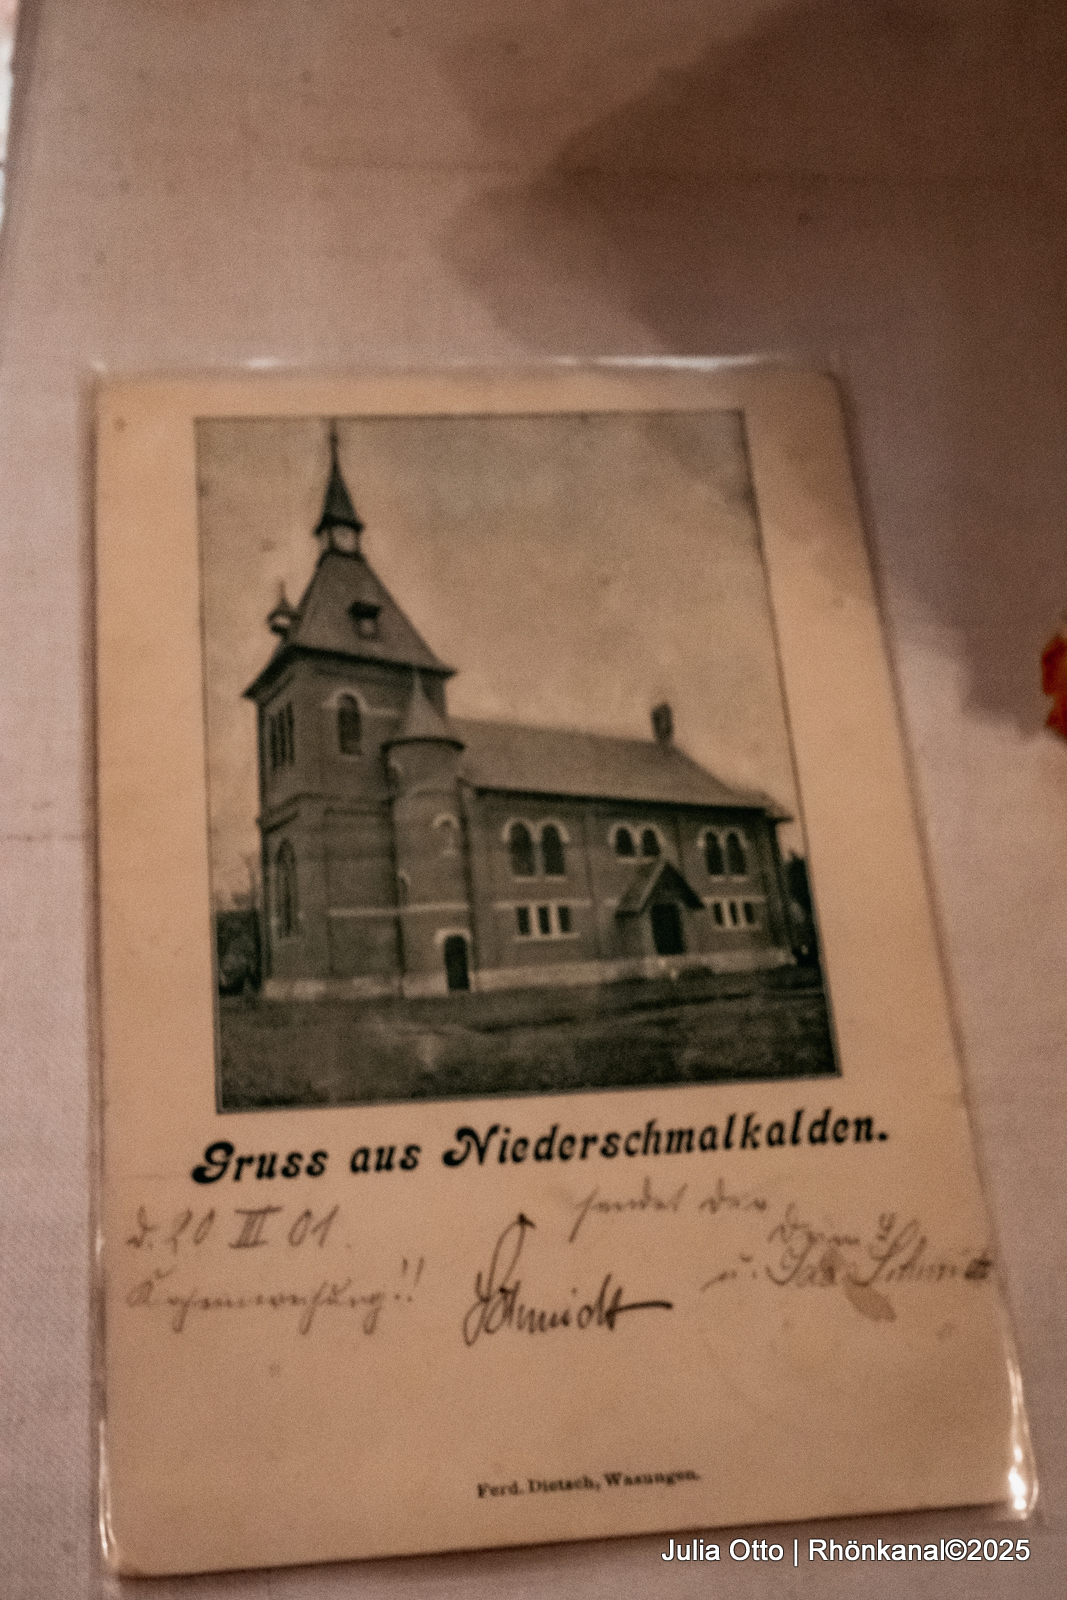 Gruss aus Niederschmalkalden.
d. 20 III 01.
sendet
Schmidt
u.
Ferd. Dietsch, Wasungen.
Julia Otto | Rhönkanal©2025